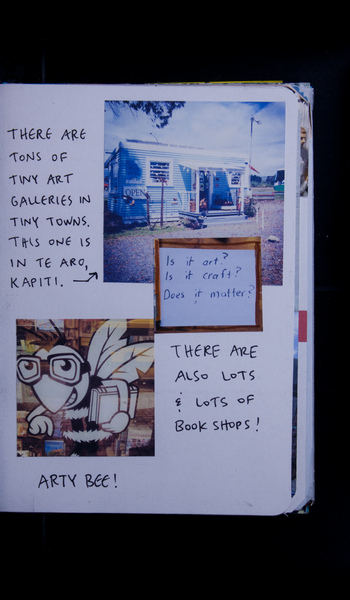 THERE ARE
TONS OF
TINY ART
GALLERIES IN
TINY TOWNS.
THIS ONE IS
IN TE ARO,
KAPITI.
OPEN
Is it art?
Is it craft?
Does it matter?
THERE ARE
ALSO LOTS
& LOTS OF
BOOK SHOPS!
ARTY BEE!